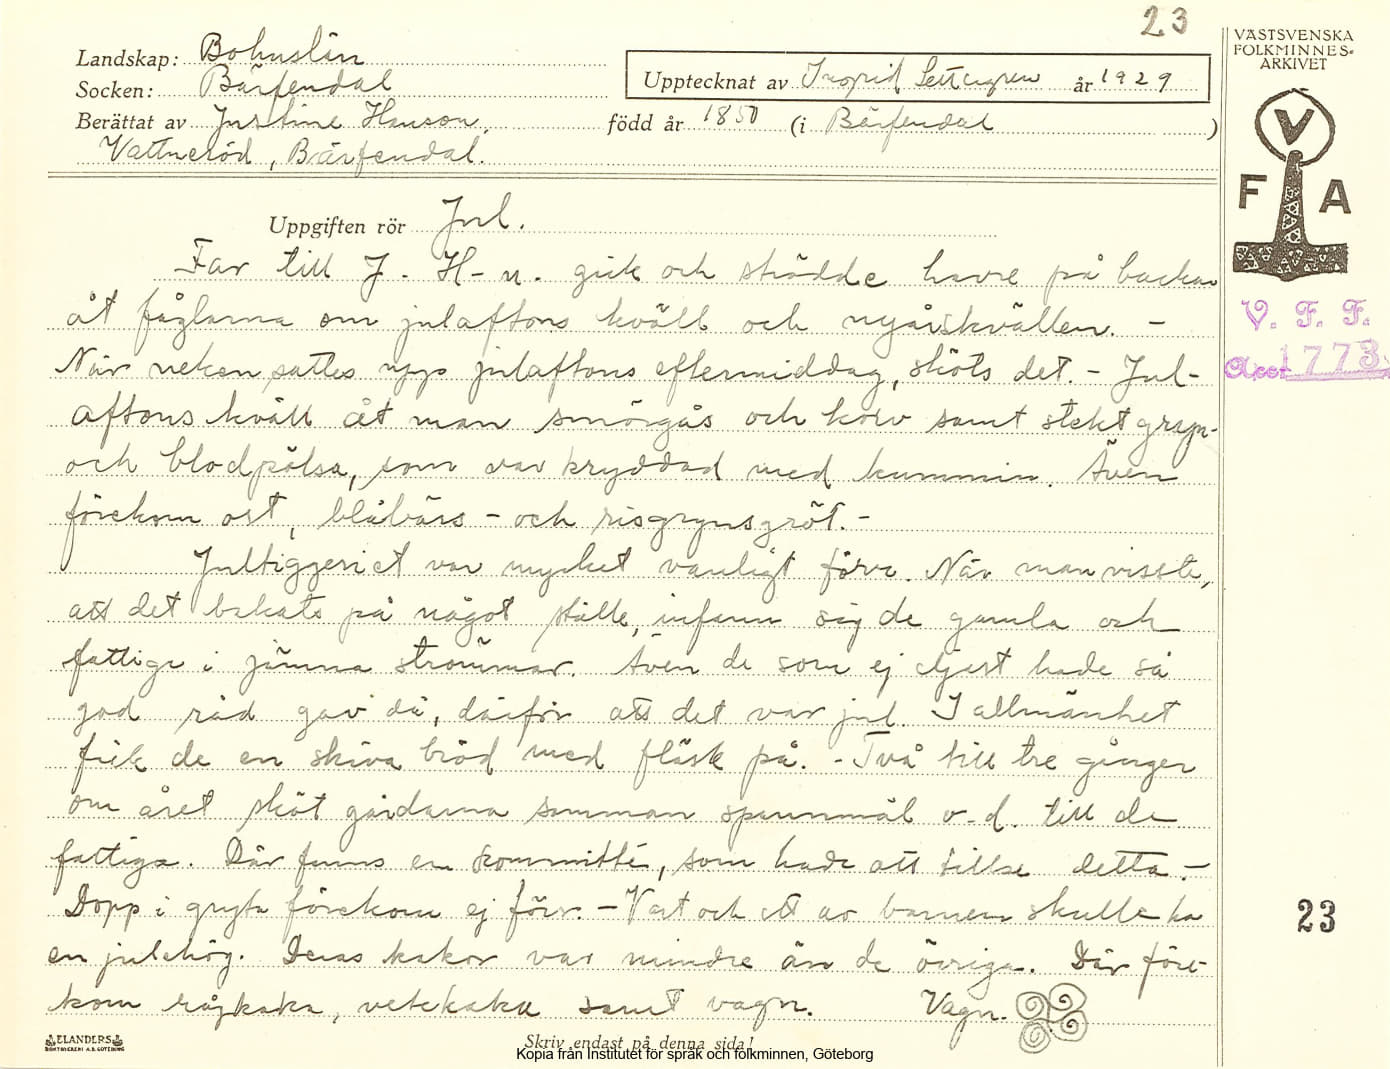 23
Landskap: Bohuslän
Socken: Bärfendal
Upptecknat av Ingrid Settergren år 1929
Berättat av Justine Hanson, född år 1850 (i Bärfendal )
Vattneröd, Bärfendal.
VÄSTSVENSKA
FOLKMINNES-
ARKIVET
V
F A
V. F. F.
Acc: 1773.
Uppgiften rör Jul.
Far till J. H-n. gick och strödde havre på backen
åt fåglarna om julaftons kväll och nyårskvällen. -
När neken sattes upp julaftons eftermiddag, sköts det. - Jul-
aftons kväll åt man smörgås och korv samt stekt gryn-
och blodpölsa, som var kryddad med kummin. Även
förekom ost, blåbärs- och risgrynsgröt. -
Jultiggeriet var mycket vanligt förr. När man visste,
att det bakats på något ställe, infann sig de gamla och
fattiga i jämna strömmar. Även de som ej eljest hade så
god råd gav då, därför att det var jul. I allmänhet
fick de en skiva bröd med fläsk på. - Två till tre gånger
om året sköt gårdarna samman spannmål o.d. till de
fattiga. Där fanns en kommitté, som hade att tillse detta. -
Dopp i gryta förekom ej förr. - Vart och ett av barnen skulle ha
en julehög. Deras kakor var mindre än de övriga. Där före-
kom rågkaka, vetekaka samt vagn. Vagn.
23
ELANDERS
BOKTRYCKERI A.B. GÖTEBORG
Skriv endast på denna sida!
Kopia från Institutet för språk och folkminnen, Göteborg